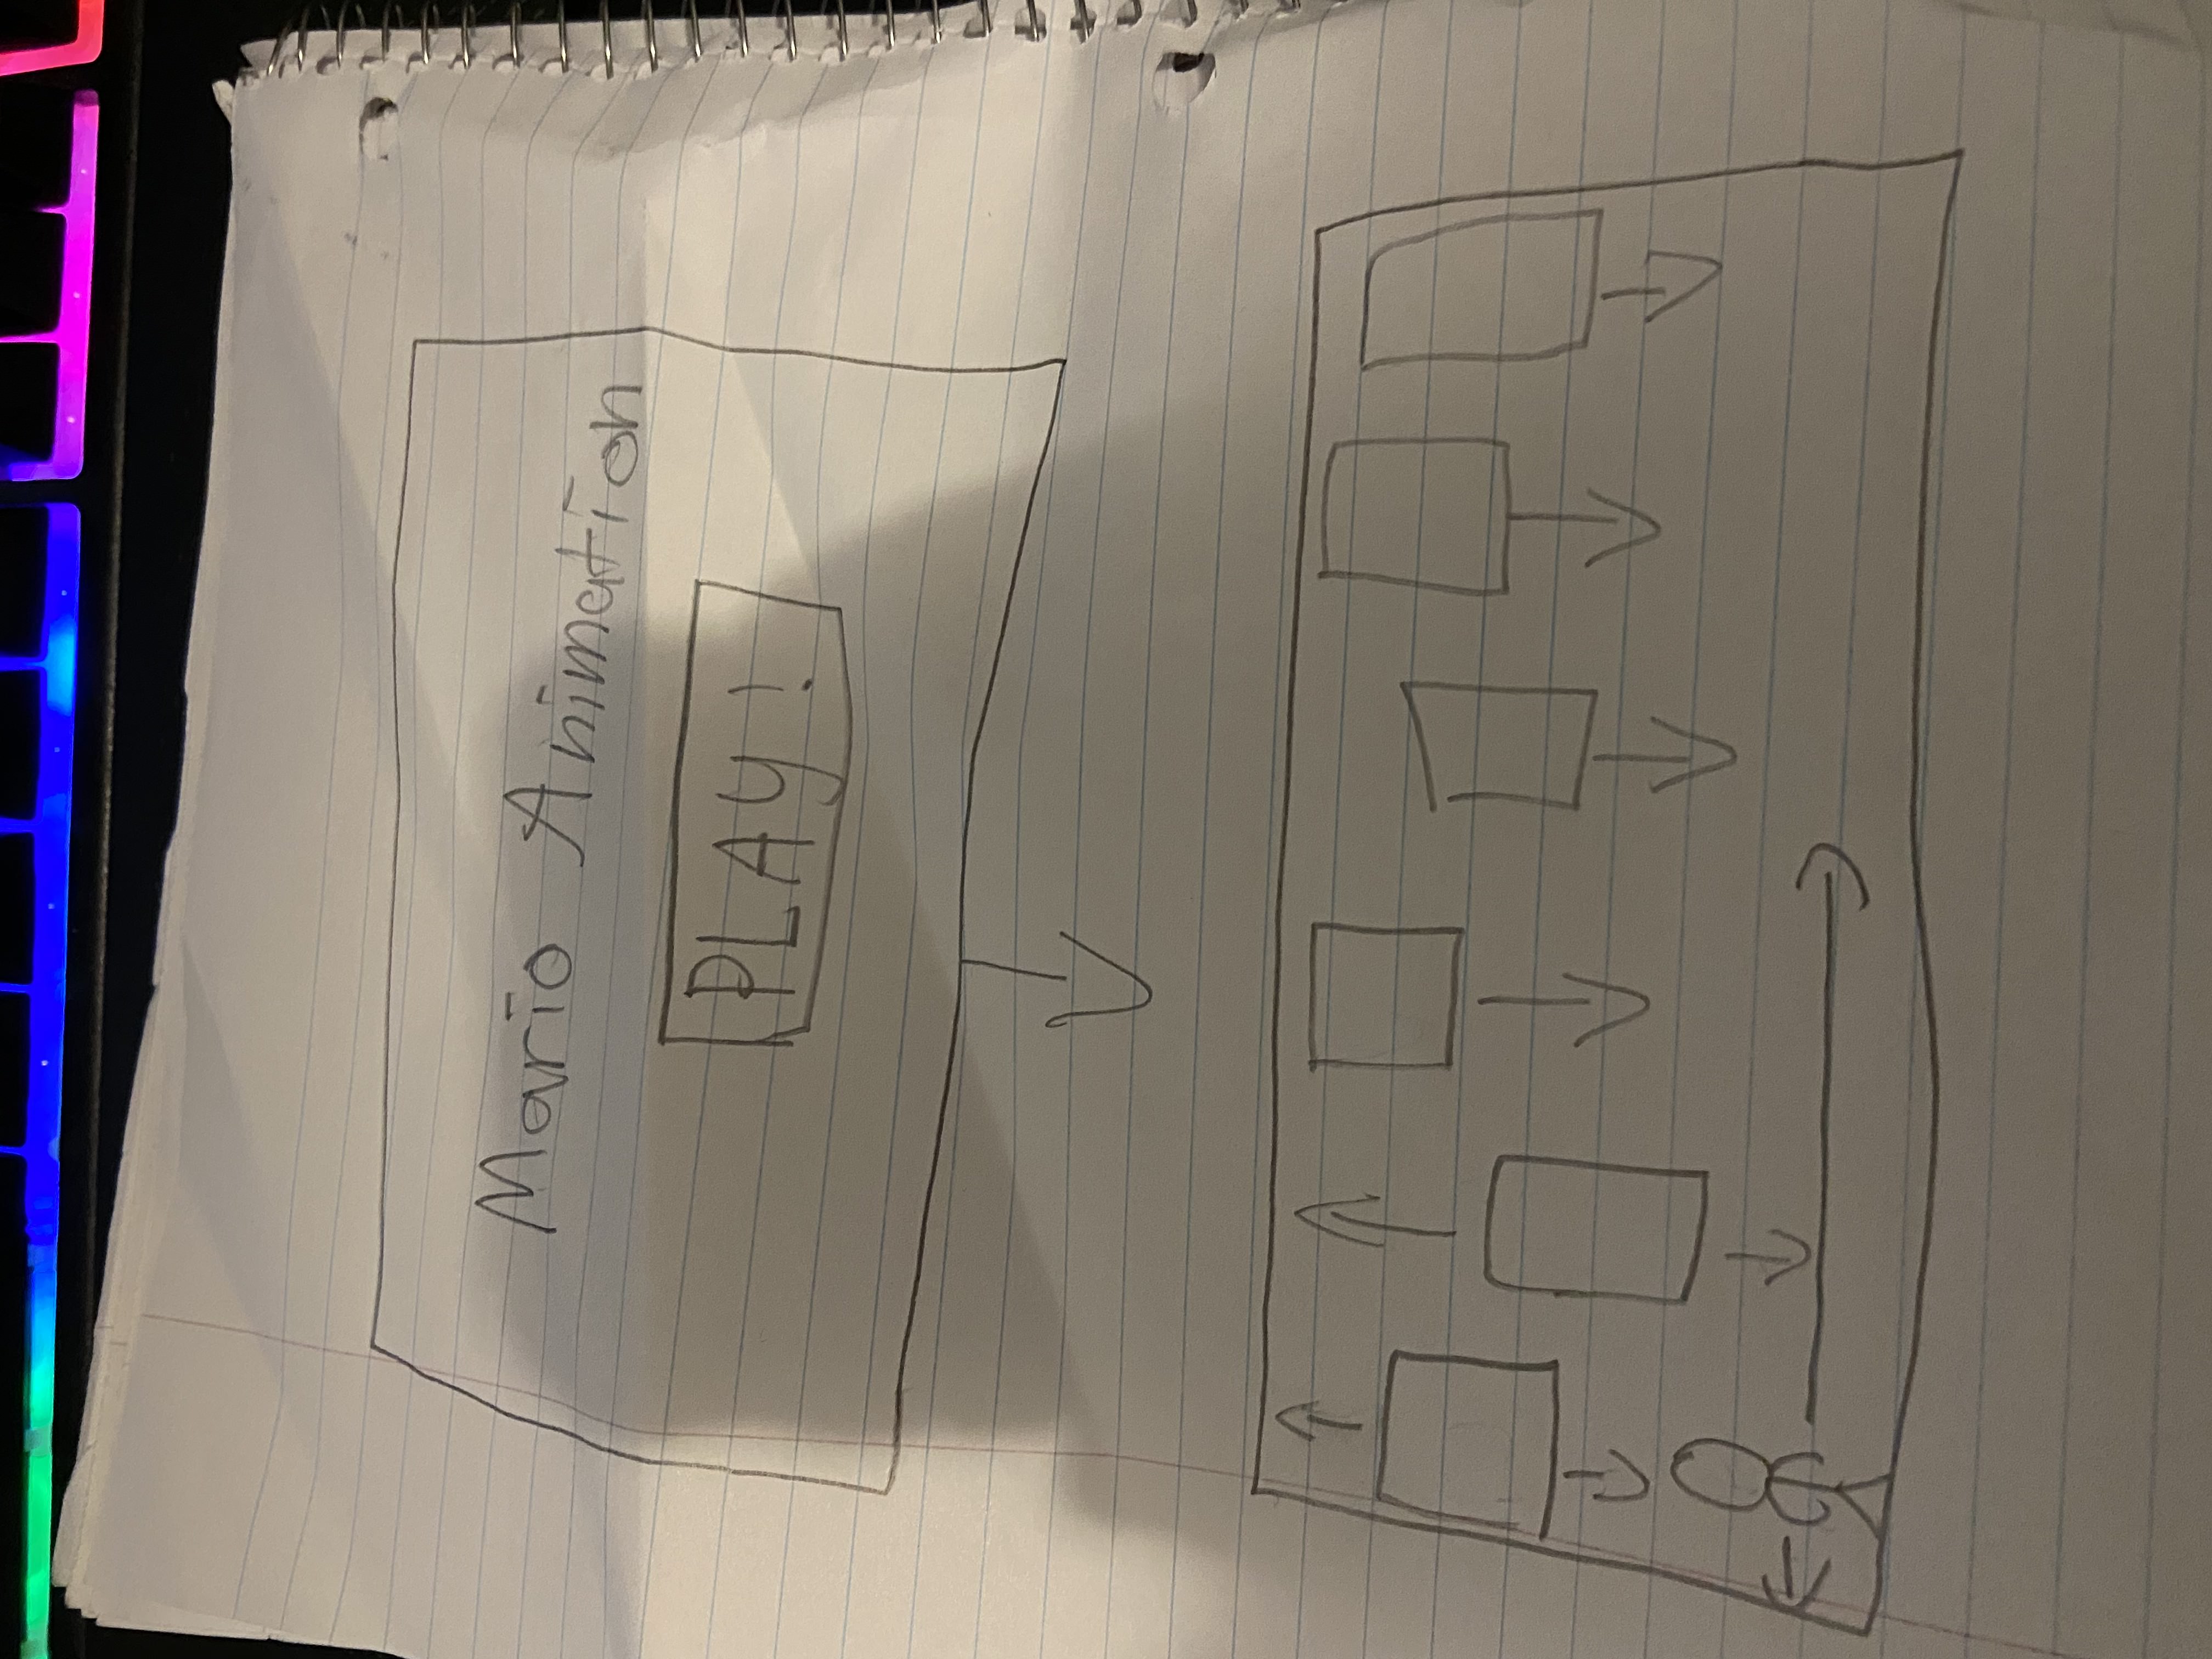 Mario Animation
PLAY!